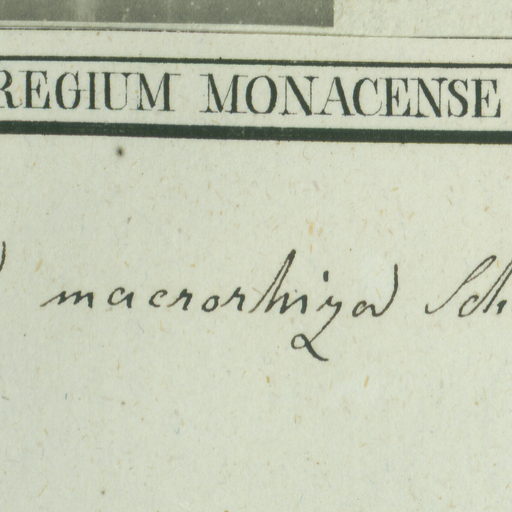 REGIUM MONACENSE
macrorhiza Sch